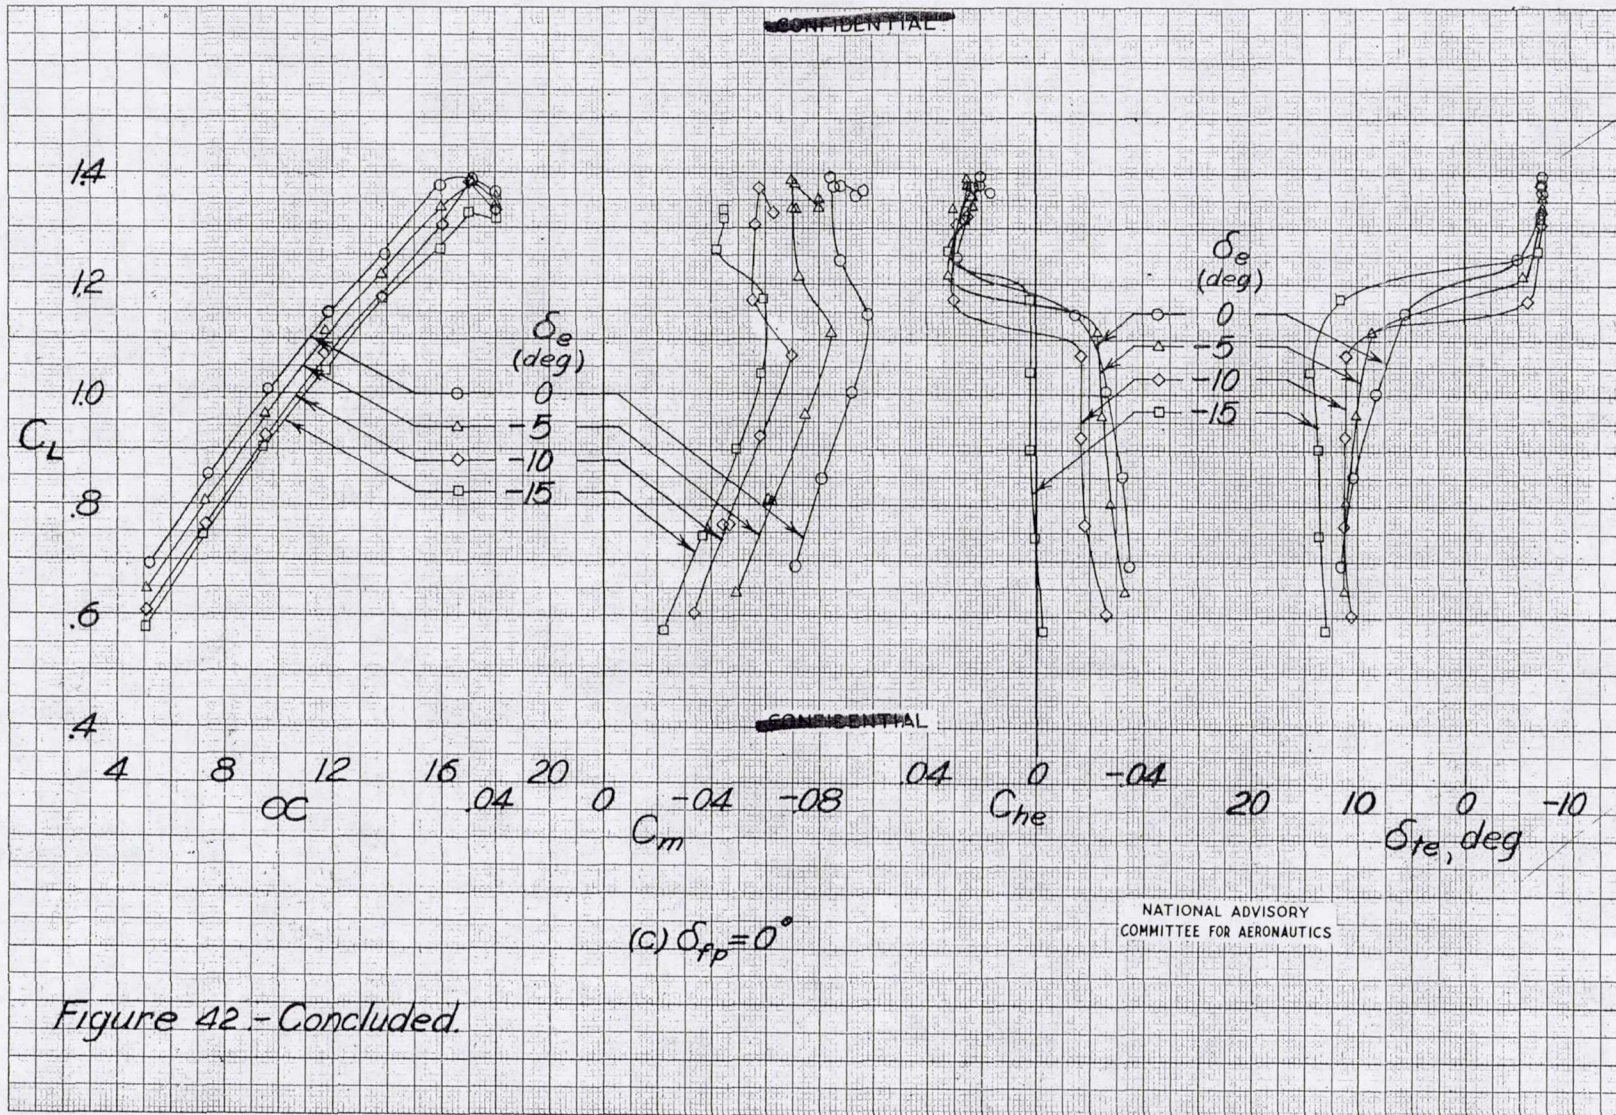 CONFIDENTIAL
1.4
1.2
1.0
.8
.6
.4
C_L
δ_e
(deg)
0
-5
-10
-15
δ_e
(deg)
0
-5
-10
-15
CONFIDENTIAL
4 8 12 16 20
α
.04 0 -.04 -.08
C_m
.04 0 -.04
C_he
20 10 0 -10
δ_te, deg
(c) δ_fp = 0°
NATIONAL ADVISORY
COMMITTEE FOR AERONAUTICS
Figure 42.-Concluded.